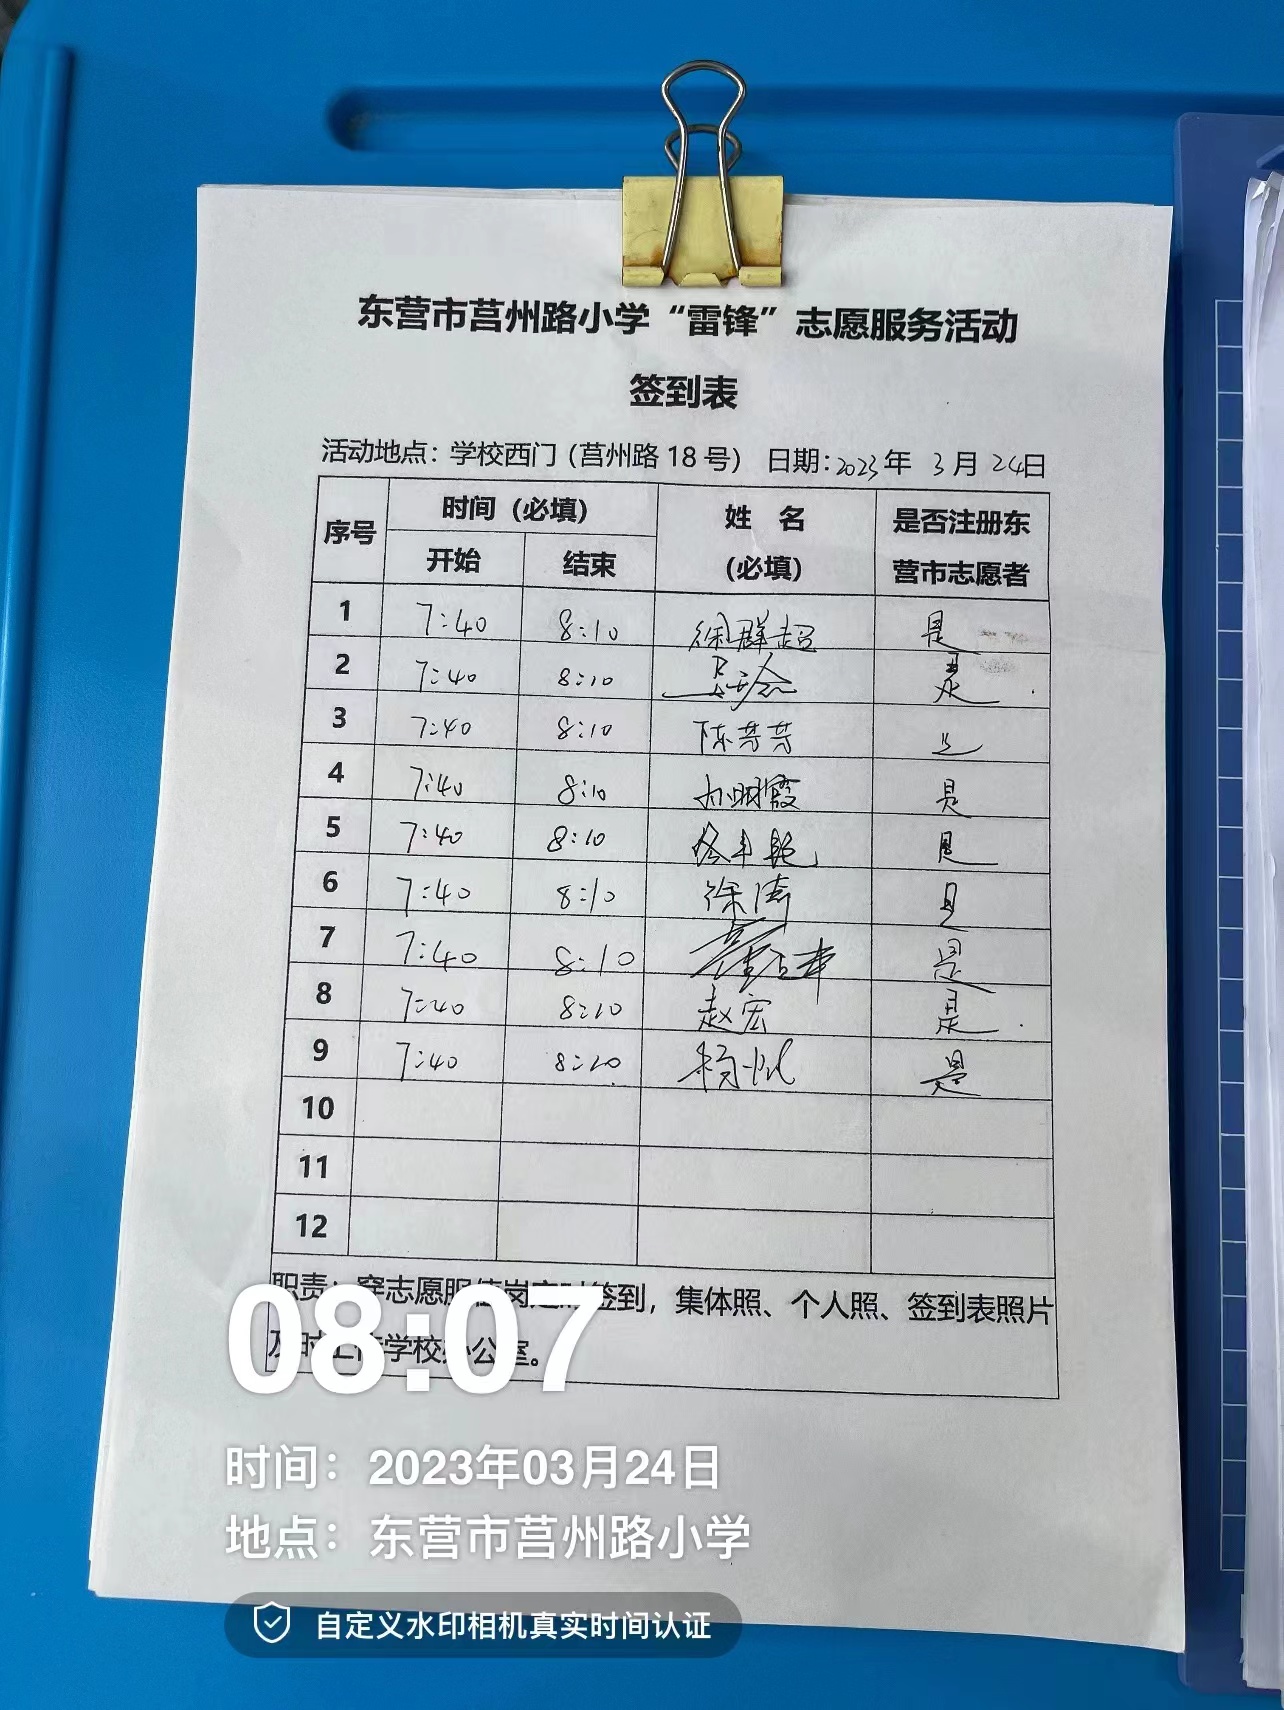 东营市莒州路小学“雷锋”志愿服务活动
签到表
活动地点：学校西门（莒州路18号） 日期：2023年 3月 24日
序号 时间（必填） 姓 名 是否注册东
开始 结束 （必填） 营市志愿者
1 7:40 8:10 徐群超 是
2 7:40 8:10 是
3 7:40 8:10 陈芳芳 是
4 7:40 8:10 孙明霞 是
5 7:40 8:10 是
6 7:40 8:10 徐涛 是
7 7:40 8:10 是
8 7:40 8:10 赵宏 是
9 7:40 8:10 杨帆 是
10
11
12
职责：穿志愿服值岗定时签到，集体照、个人照、签到表照片
及时上传学校办公室。
08:07
时间：2023年03月24日
地点：东营市莒州路小学
自定义水印相机真实时间认证